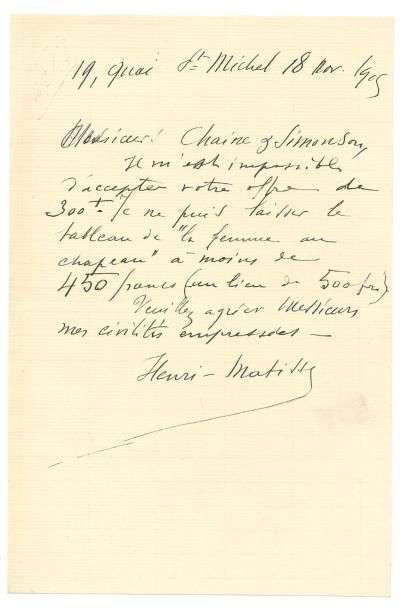 19, quai St Michel 18 nov. 1905
Messieurs Chaine & Simonson,
Il m'est impossible
d'accepter votre offre de
300 f. Je ne puis laisser le
tableau de "la femme au
chapeau" à moins de
450 francs (au lieu de 500 frs)
Veuillez agréer Messieurs
mes civilités empressées —
Henri-Matisse